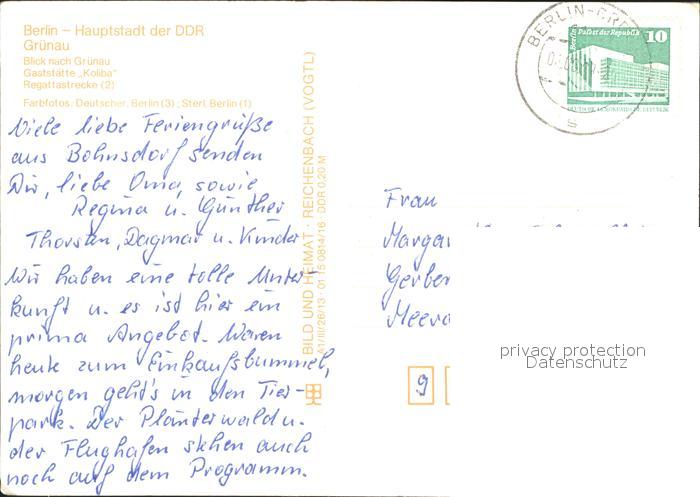 Berlin – Hauptstadt der DDR
Grünau
Blick nach Grünau
Gaststätte „Koliba"
Regattastrecke (2)
Farbfotos: Deutscher, Berlin (3); Sterl, Berlin (1)
Viele liebe Feriengrüße
aus Bohnsdorf senden
Dir, liebe Oma, sowie
Regina u. Günther
Thorsten, Dagmar u. Kinder
Wir haben eine tolle Unter-
kunft u. es ist hier ein
prima Angebot. Waren
heute zum Einkaufsbummel,
morgen geht's in den Tier-
park. Der Plänterwald u.
der Flughafen stehen auch
noch auf dem Programm.
BILD UND HEIMAT · REICHENBACH (VOGTL)
A1/III/26/13 · 01 15 0814/16 · DDR 0,20 M
BERLIN-GR
Berlin Palast der Republik
10
Frau
Margar
Gerber
Meera
9
privacy protection
Datenschutz